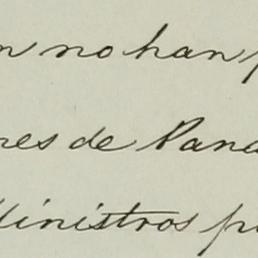 n no han p
nes de Pana
Ministros pu